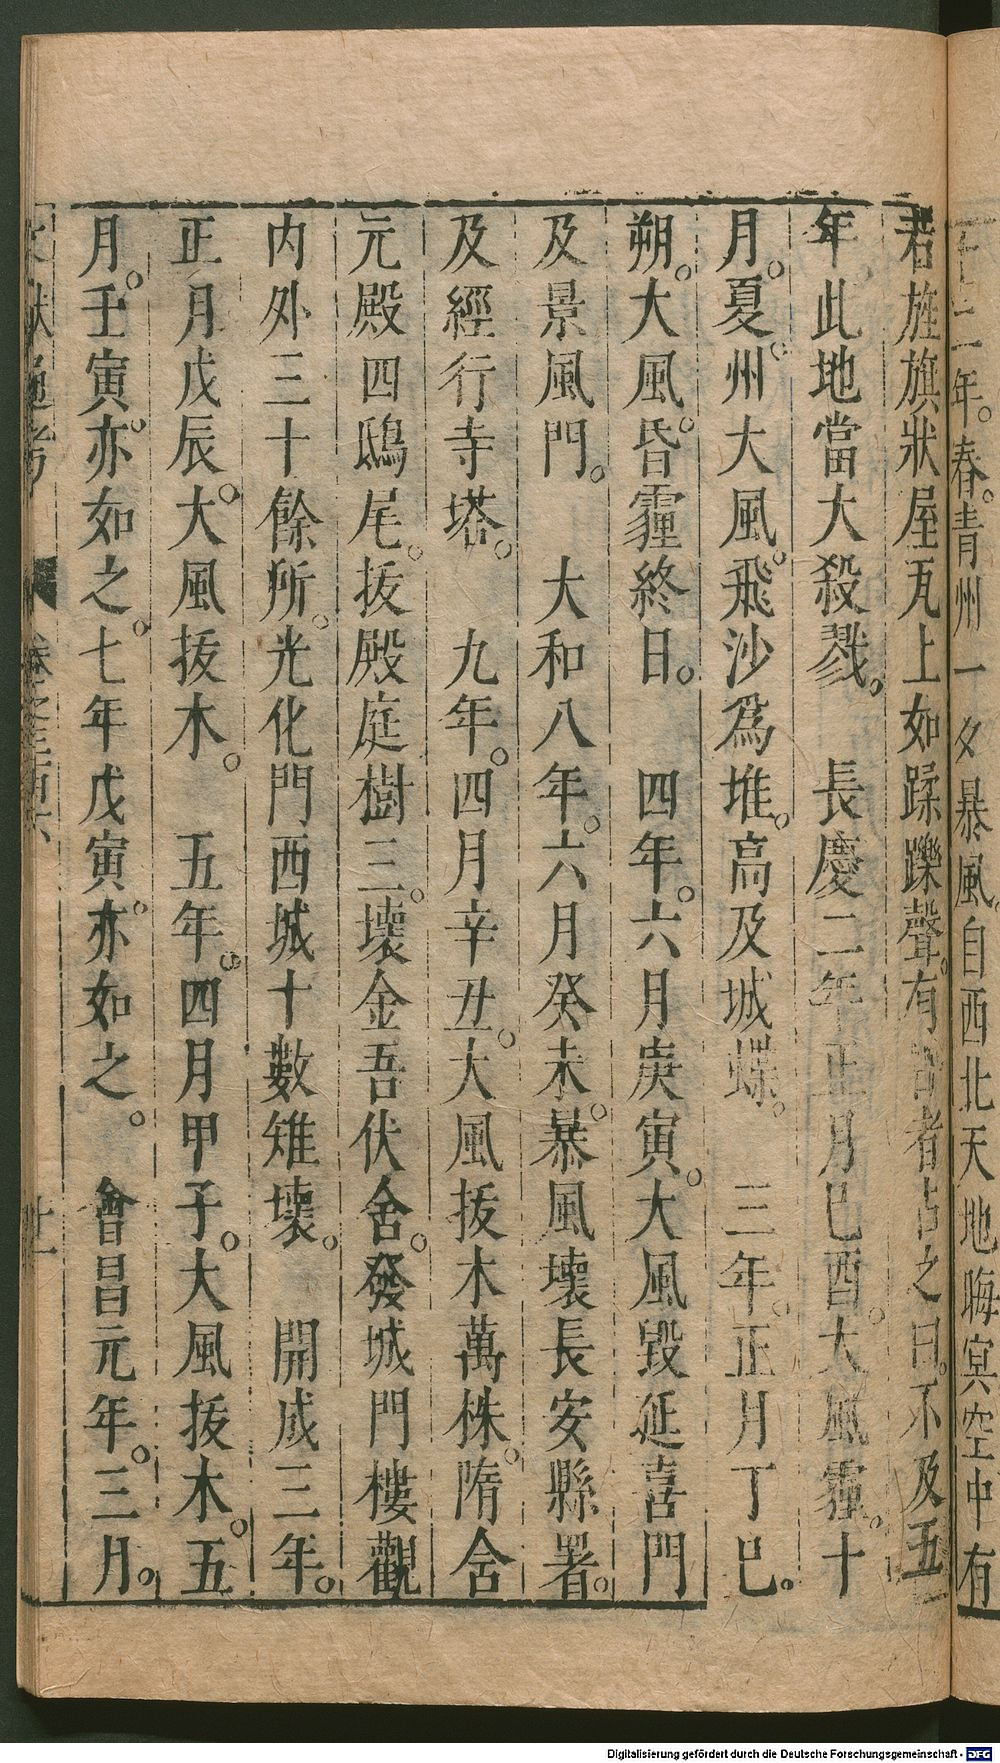 十二年。春。青州一夕暴風。自西北天地晦冥空中有
若旌旗狀屋瓦上如蹂躒聲。有占者占之曰。不及五
年。此地當大殺戮。　長慶二年正月巳酉。大風霾。十
月。夏。州大風。飛沙爲堆。高及城堞。　三年。正月丁巳。
朔。大風。昏霾終日。　四年。六月庚寅。大風毀延喜門
及景風門。　大和八年。六月癸未。暴風壞長安縣署。
及經行寺塔。　九年。四月辛丑。大風拔木萬株。隋舍
元殿四鴟尾。拔殿庭樹三。壞金吾伏舍。發城門樓觀
内外三十餘所。光化門西城十數雉壞。　開成三年。
正月戊辰。大風拔木。　五年。四月甲子。大風拔木。五
月。壬寅。亦如之。七年戊寅。亦如之。　會昌元年。三月。
文獻通考　卷之三百六　十一
Digitalisierung gefördert durch die Deutsche Forschungsgemeinschaft - DFG